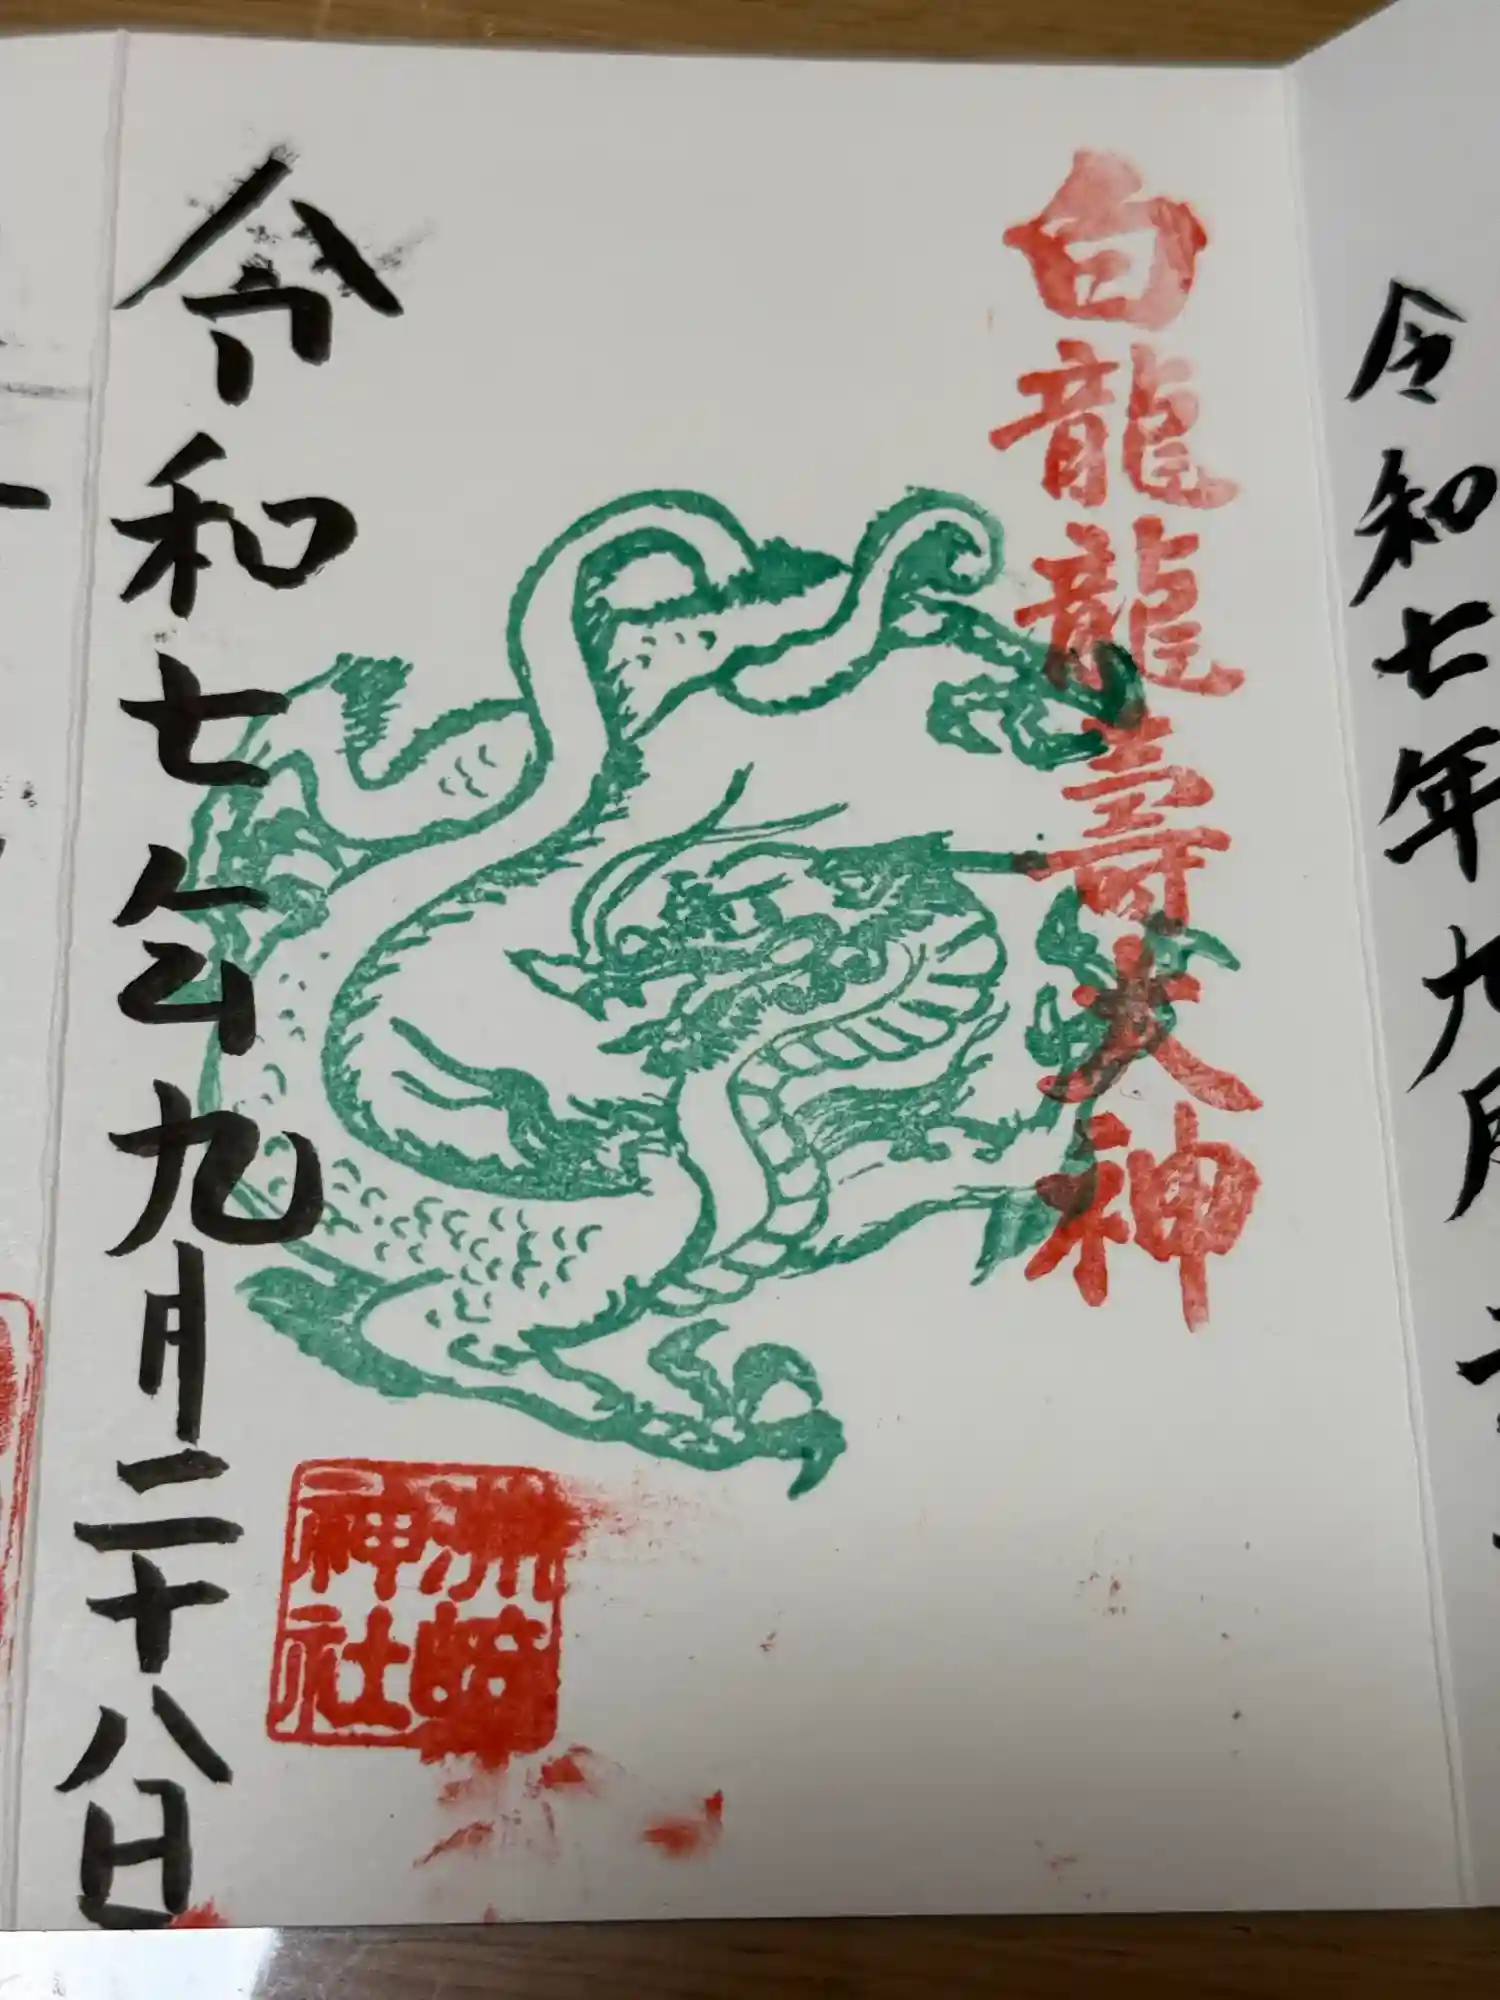 白龍龍壽大神
令和七年九月二十八日
洲崎
神社
令和七年九月二